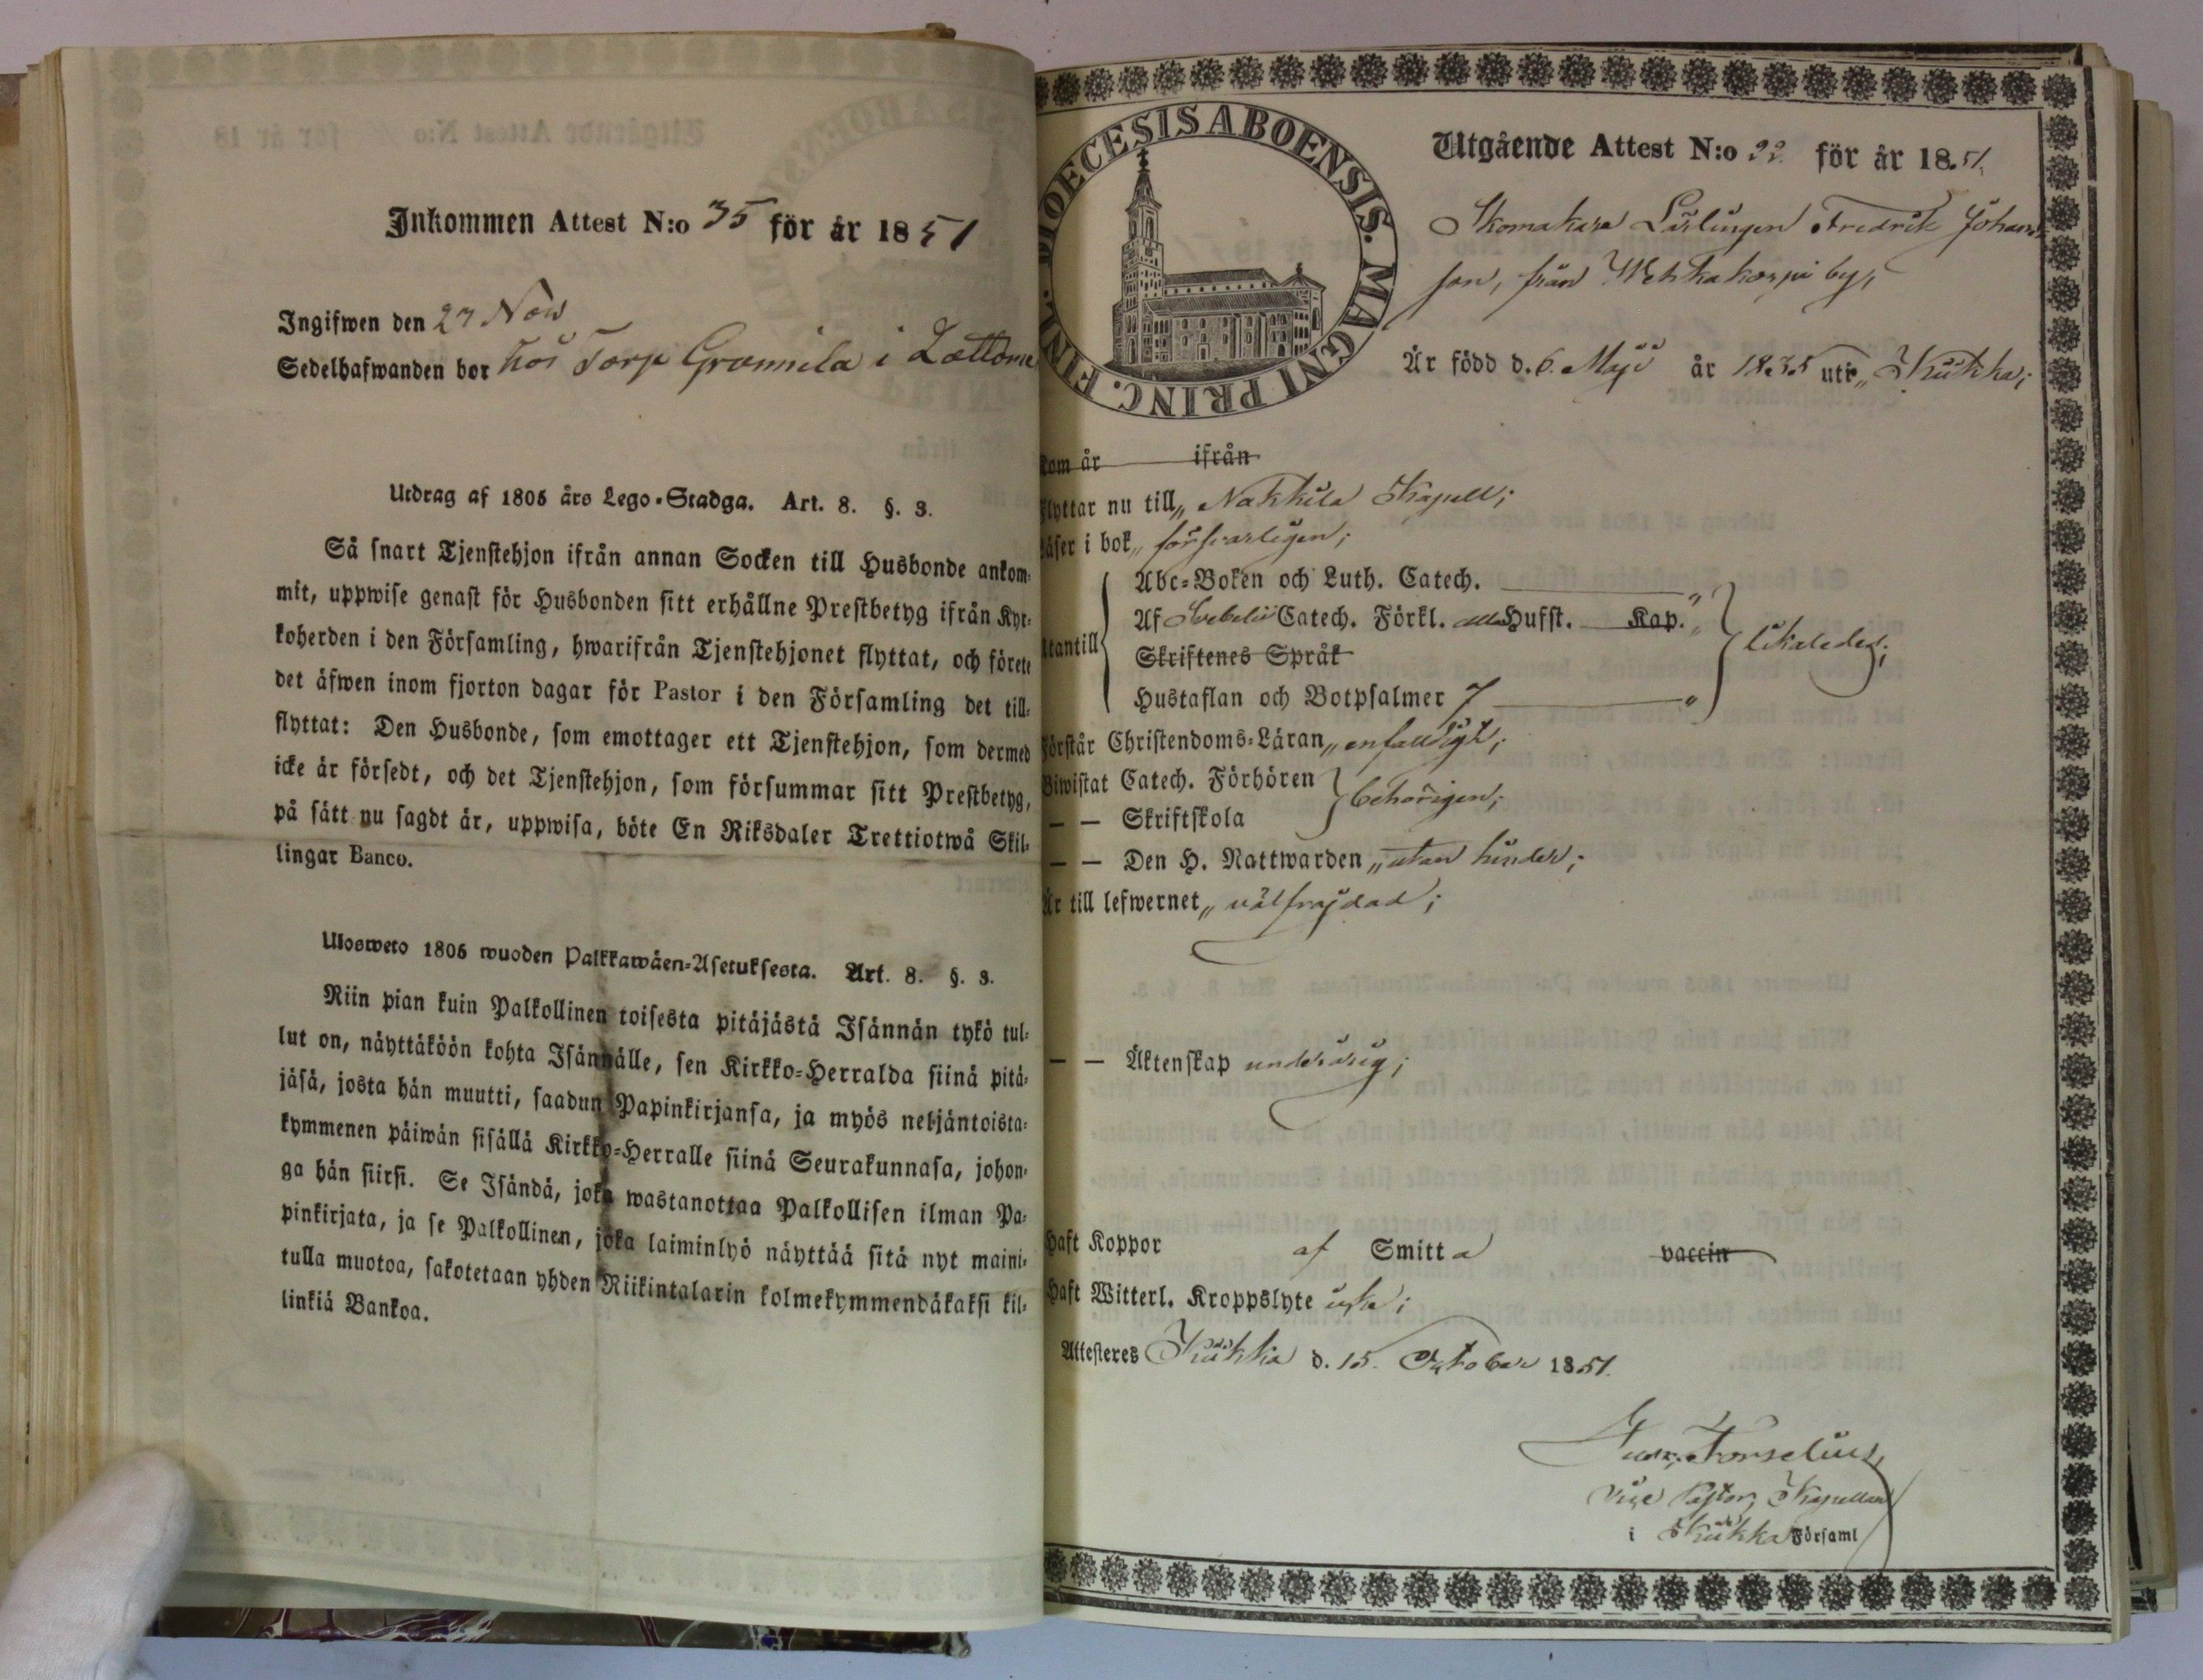 Inkommen Attest N:o 35 för år 1851
Ingifwen den 27 Nov
Sedelhafwanden bor hos Torp Grannila i Lattome
Utdrag af 1805 års Lego-Stadga. Art. 8. §. 3.
Så snart Tjenstehjon ifrån annan Socken till Husbonde ankom-
mit, uppwise genast för Husbonden sitt erhållne Prestbetyg ifrån Kyr-
koherden i den Församling, hwarifrån Tjenstehjonet flyttat, och förete
det äfwen inom fjorton dagar för Pastor i den Församling det till-
flyttat: Den Husbonde, som emottager ett Tjenstehjon, som dermed
icke är försedt, och det Tjenstehjon, som försummar sitt Prestbetyg,
på sätt nu sagdt är, uppwisa, böte En Riksdaler Trettiotwå Skil-
lingar Banco.
Ulosweto 1805 wuoden Palkkawäen-Asetuksesta. Art. 8. §. 3.
Niin pian kuin Palkollinen toisesta pitäjästä Isännän tykö tul-
lut on, näyttäköön kohta Isännälle, sen Kirkko-Herralda siinä pitä-
jäsä, josta hän muutti, saadun Papinkirjansa, ja myös neljäntoista-
kymmenen päiwän sisällä Kirkko-Herralle siinä Seurakunnasa, johon-
ga hän siirsi. Se Isändä, joka wastanottaa Palkollisen ilman Pa-
pinkirjata, ja se Palkollinen, joka laiminlyö näyttää sitä nyt maini-
tulla muotoa, sakotetaan yhden Riikintalarin kolmekymmendäkaksi kil-
linkiä Bankoa.
DIOECESIS ABOENSIS. MAGNI PRINC. FINL.
Utgående Attest N:o 22. för år 1851.
Skomakare Lärlingen Fredrik Johans-
son, från Wehkakorpi by,
Är född d. 6. Maji år 1835 uti „ Kiikka;
kom år ifrån
flyttar nu till „ Nakkila Kapell;
läser i bok „ försvarligen;
Abc-Boken och Luth. Catech. „
Af Svebelii Catech. Förkl. alla Hufst. Kap. „
utantill likaledes;
Skriftenes Språk
Hustaflan och Botpsalmer 7 „
Förstår Christendoms-Läran „ enfaldigt;
Biwistat Catech. Förhören
behörigen;
— — Skriftskola
— — Den H. Nattwarden „ utan hinder;
Är till lefwernet „ välfrejdad;
— — Äktenskap underårig;
Haft Koppor af Smitta vaccin
Haft Witterl. Kroppslyte icke;
Attesteres Kiikka d. 15. October 1851.
Forselius,
Vice Pastor, Kapellan
i Kiikka Församl